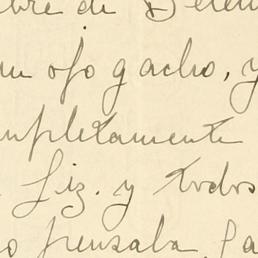 bre de
un ojo gacho, y
mpletamente
Liz. y todos
o pensaba